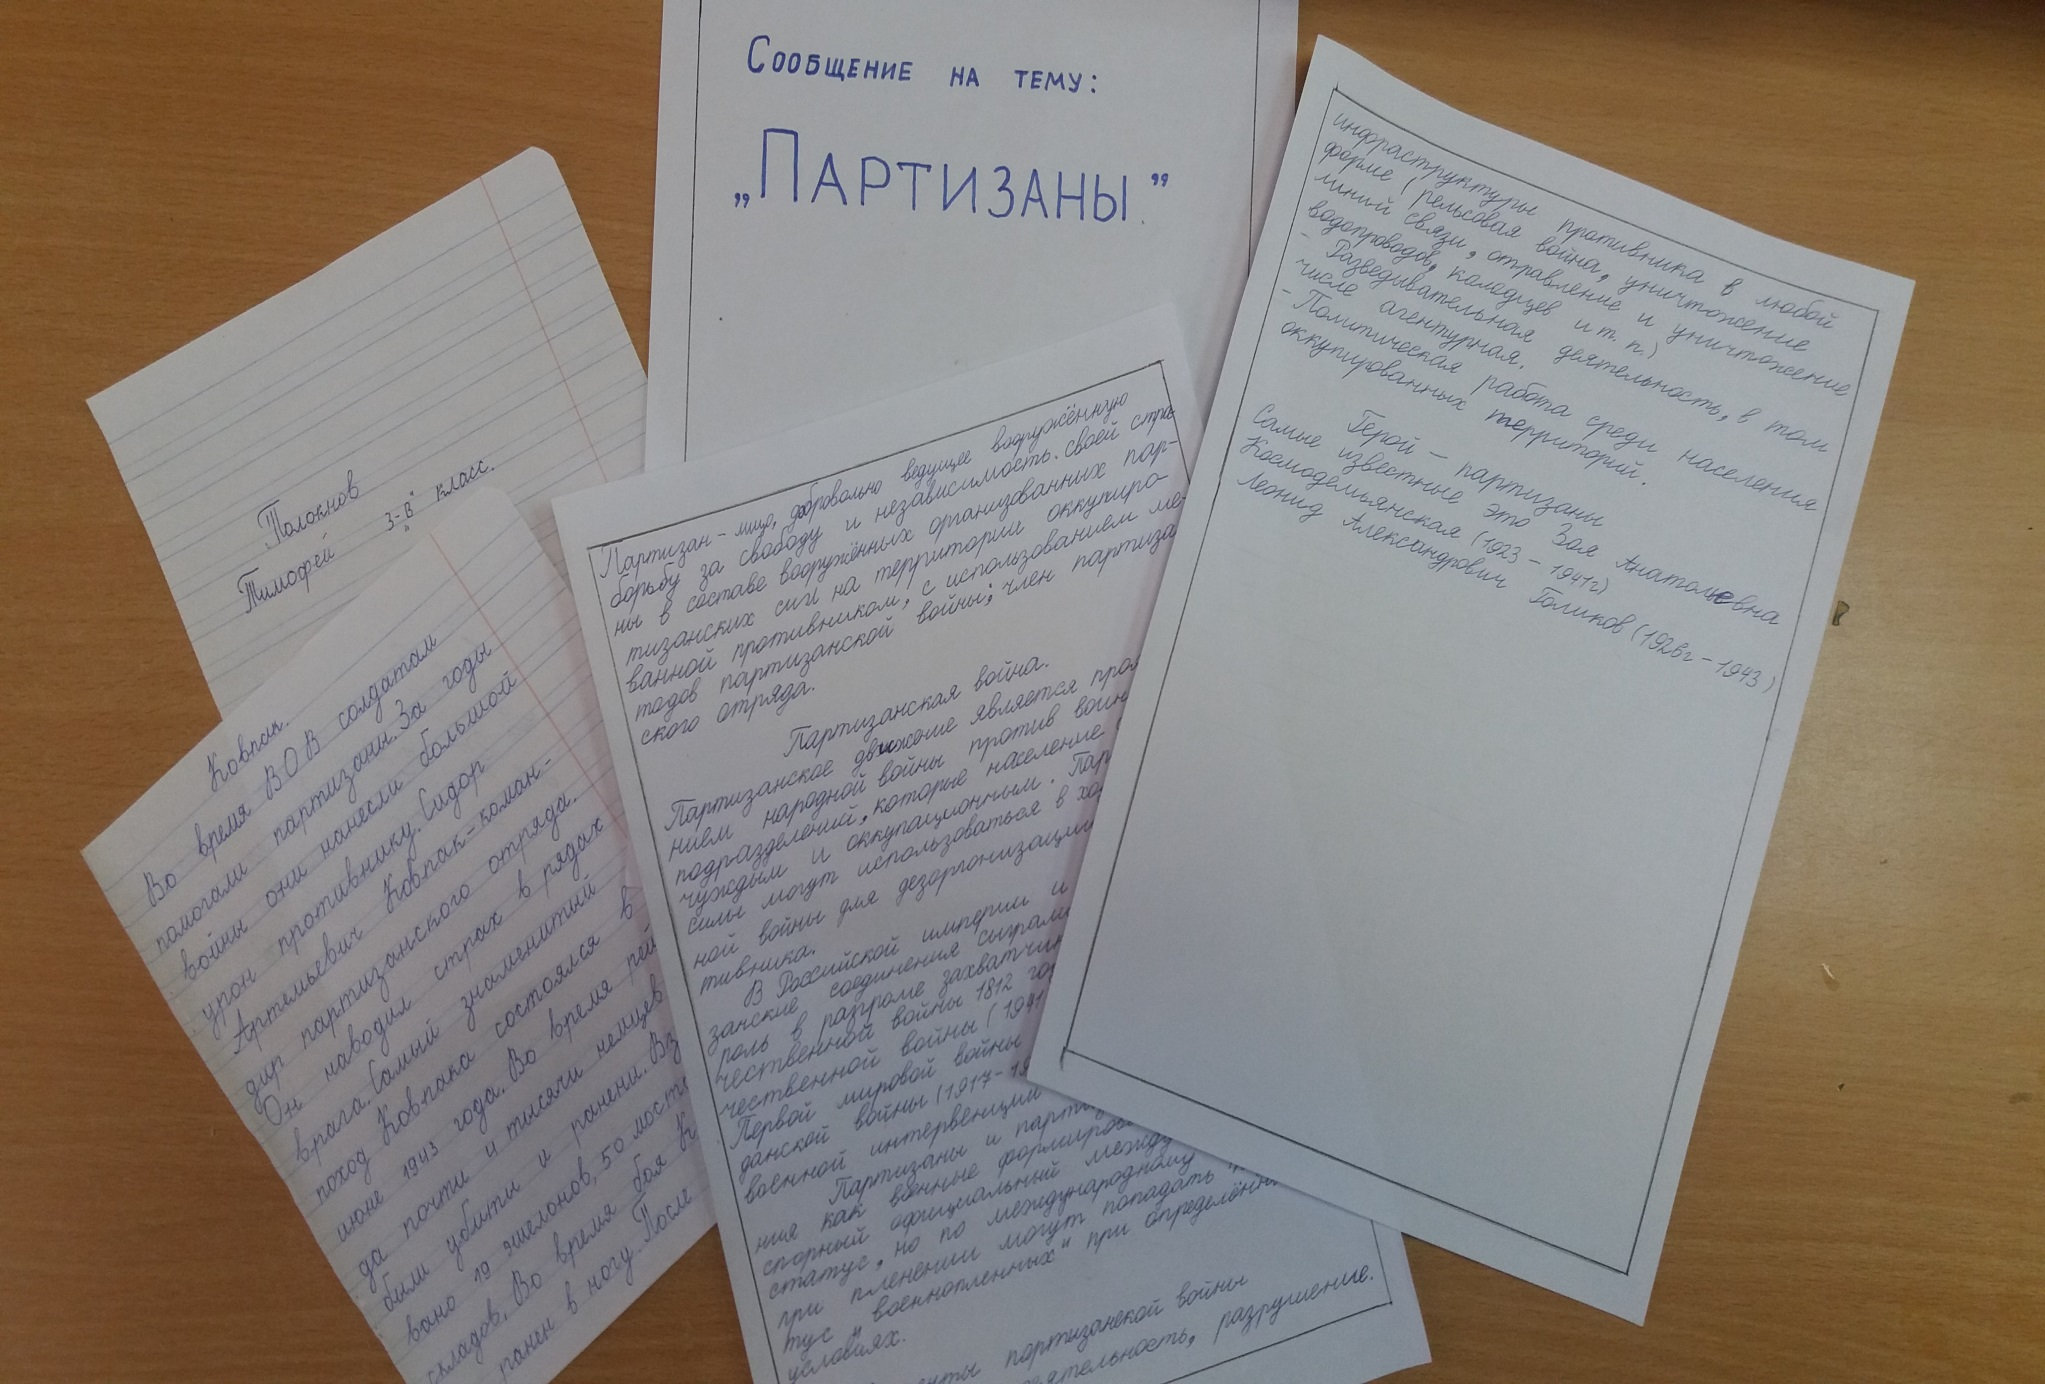 Сообщение на тему:
„Партизаны."
Толокнов
Тимофей 3-„В" класс.
Ковпак.
Во время ВОВ солдатам
помогали партизаны. За годы
войны они нанесли большой
урон противнику. Сидор
Артемьевич Ковпак - коман-
дир партизанского отряда.
Он наводил страх в рядах
врага. Самый знаменитый
поход Ковпака состоялся в
июне 1943 года. Во время рей
да почти 4 тысячи немцев
были убиты и ранены. Вз
вано 19 эшелонов, 50 мост
складов. Во время боя К
ранен в ногу. После
Партизан - лицо, добровольно ведущее вооружённую
борьбу за свободу и независимость. своей стра-
ны в составе вооружённых организованных пар-
тизанских сил на территории оккупиро-
ванной противником, с использованием ме-
тодов партизанской войны; член партиза
ского отряда.
Партизанская война.
Партизанское движение является про
нием народной войны против воин
подразделений, которые население
чуждым и оккупационным. Пар
силы могут использоваться в хо
ной войны для дезорганизации
тивника.
В Российской империи и
занские соединения сыграли
роль в разгроме захватчик
чественной войны 1812 го
чественной войны (1941
Первой мировой войны
данской войны (1917-19
военной интервенции
Партизаны и парти
ния как военные формиров
спорный официальный между
статус, но по международному
при пленении могут попадать
тус „военнопленных" при определённ
условиях.
партизанской войны
разрушение.
инфраструктуры противника в любой
форме (рельсовая война, уничтожение
линий связи, отравление и уничтожение
водопроводов, колодцев и т. п.)
- Разведывательная деятельность, в том
числе агентурная.
- Политическая работа среди населения
оккупированных территорий.
Герой - партизаны
Самые известные это Зоя Анатольевна
Космодемьянская (1923 - 1941г)
Леонид Александрович Голиков (1926г - 1943)